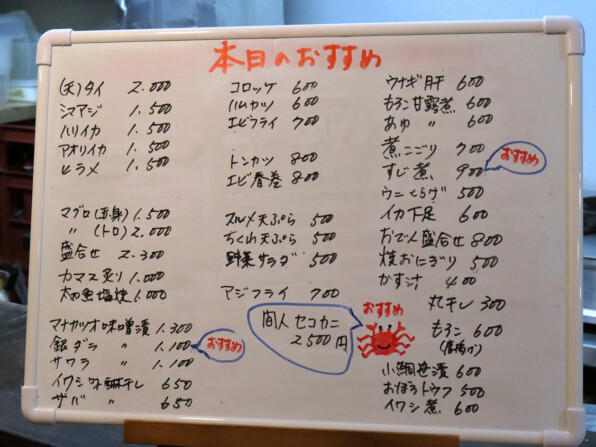 本日のおすすめ
(天)タイ 2.000
シマアジ 1.500
ハリイカ 1.500
アオリイカ 1.500
ヒラメ 1.500
マグロ(赤身) 1.500
〃 (トロ) 2.000
盛合せ 2.300
カマス炙り 1.000
太刀魚塩焼 1.000
マナカツオ味噌漬 1.300
銀ダラ 〃 1.100 おすすめ
サワラ 〃 1.100
イワシ味醂干し 650
サバ 〃 650
コロッケ 600
ハムカツ 600
エビフライ 700
トンカツ 800
エビ春巻 800
スルメ天ぷら 500
ちく山天ぷら 500
野菜サラダ 500
アジフライ 700
間人セコカニ
2500円
おすすめ
ウナギ肝 600
もろこ甘露煮 600
あゆ 〃 600
煮こごり 700
すじ煮 900 おすすめ
ウニくらげ 500
イカ下足 600
おでん盛合せ 800
焼おにぎり 500
かす汁 400
丸干し 300
もろこ 600
小鯛笹漬 600
おぼろトウフ 500
イワシ煮 600